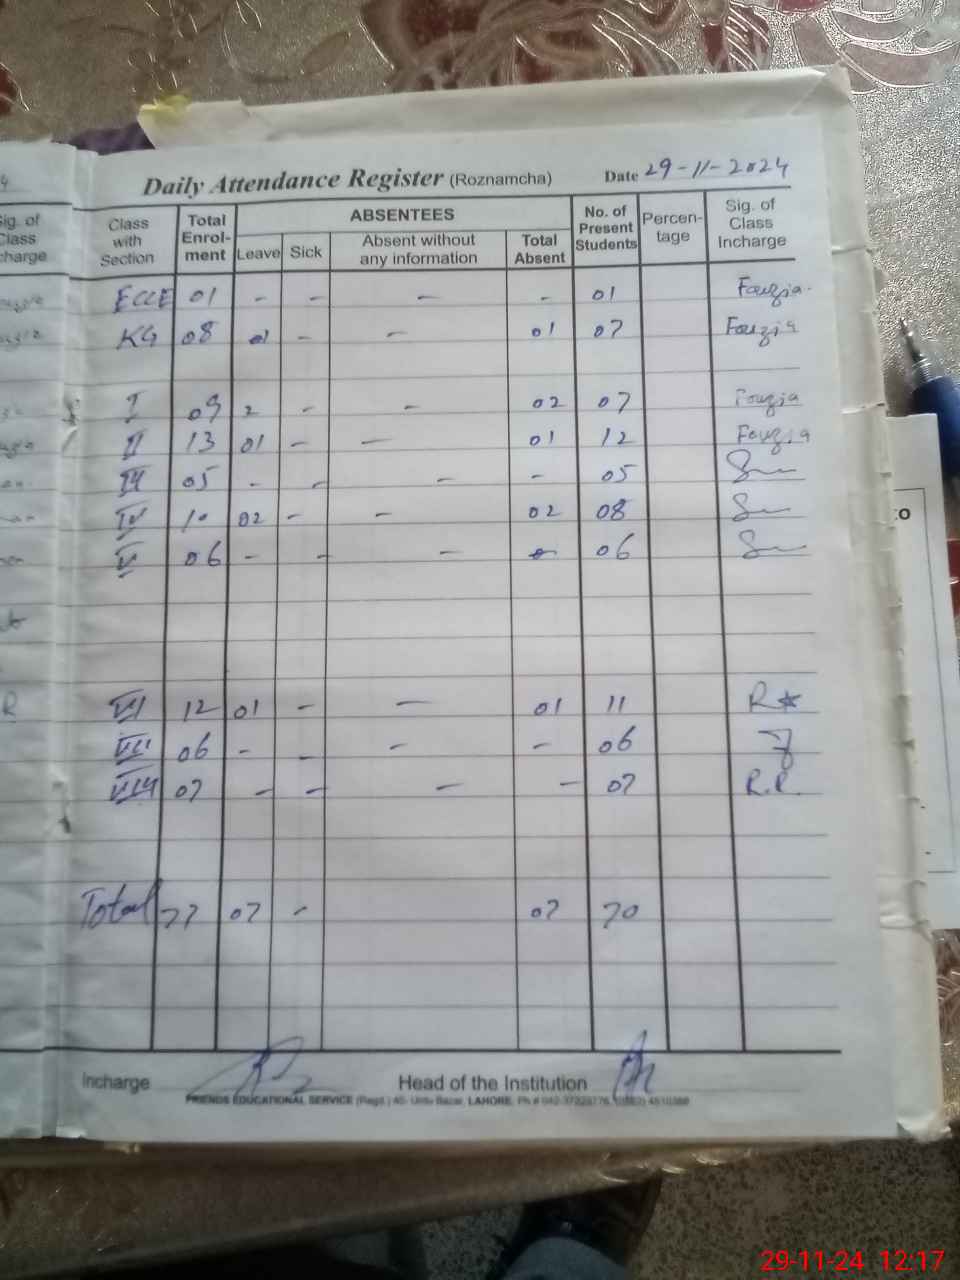 Daily Attendance Register (Roznamcha) Date 29-11-2024
Class with Section Total Enrol-ment ABSENTEES Leave Sick Absent without any information Total Absent No. of Present Students Percen-tage Sig. of Class Incharge
Sig. of Class Incharge
ECCE 01 - - - - 01 Fouzia
KG 08 01 - - 01 07 Fouzia
I 09 2 - - 02 07 Fouzia
II 13 01 - - 01 12 Fouzia
III 05 - - - - 05
IV 10 02 - - 02 08
V 06 - - - - 06
VI 12 01 - - 01 11 R
VII 06 - - - - 06
VIII 07 - - - - 07 R.R.
Total 77 07 - 07 70
Incharge Head of the Institution
FRIENDS EDUCATIONAL SERVICE (Regd.) 40- Urdu Bazar, LAHORE. Ph #
to
29-11-24 12:17